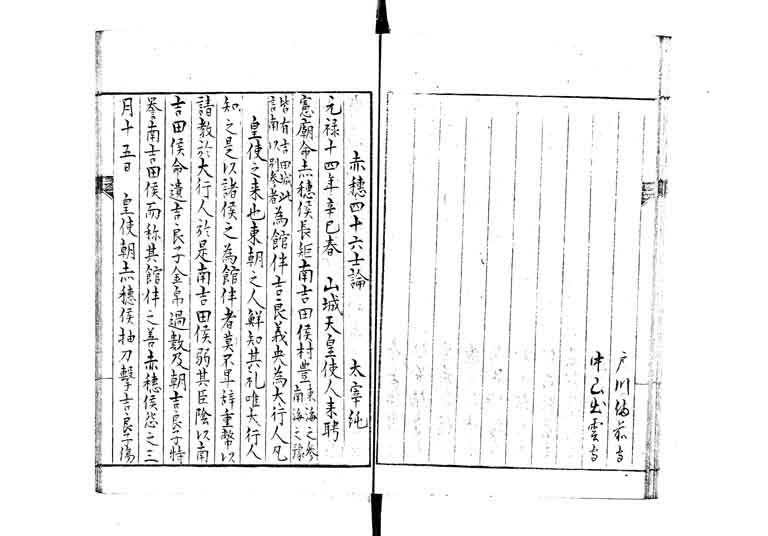 戸川備前守
中山出雲守
赤穂四十六士論　太宰純
元禄十四年辛巳春　山城天皇使人来聘
憲廟命赤穂侯長矩南吉田侯村豊東海之参南海之豫
皆有吉田城此言南以別参者為館伴吉良義央為大行人凡
皇使之来也東朝之人鮮知其礼唯大行人
知之是以諸侯之為館伴者莫不早辞重幣以
請教於大行人於是南吉田侯弱其臣陰以南
吉田侯命遺吉良子金帛過数及朝吉良子特
誉南吉田侯而称其館伴之善赤穂侯恣之三
月十五日　皇使朝赤穂侯抽刀撃吉良子傷